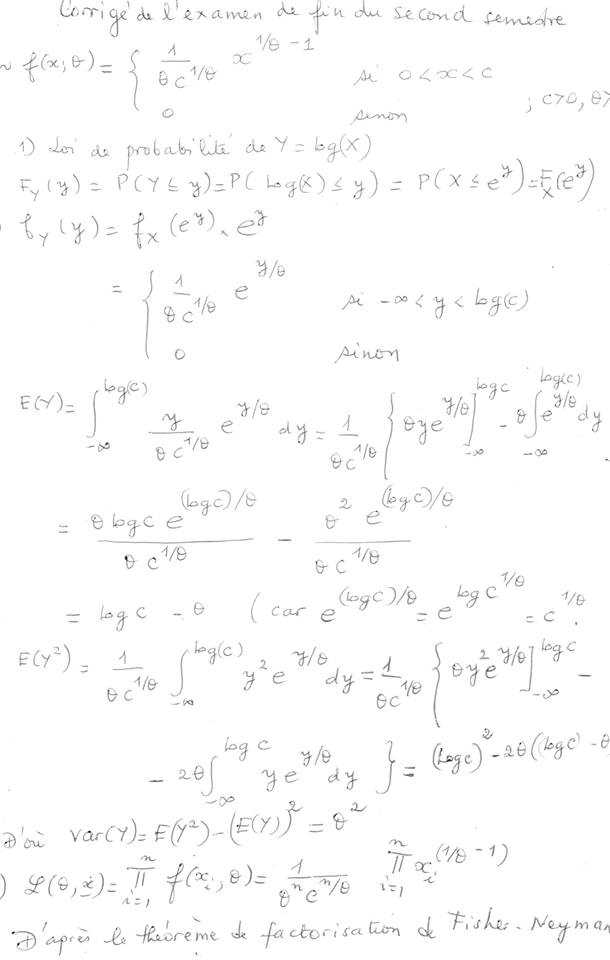 Corrigé de l'examen de fin du second semestre
f(x;θ) = { 1/(θ c^{1/θ}) x^{1/θ - 1} si 0 < x < c
0 sinon ; c>0, θ>
1) Loi de probabilité de Y = log(X)
F_Y(y) = P(Y ≤ y) = P(log(X) ≤ y) = P(X ≤ e^y) = F_X(e^y)
f_Y(y) = f_X(e^y) × e^y
= { 1/(θ c^{1/θ}) e^{y/θ} si -∞ < y < log(c)
0 sinon
E(Y) = ∫_{-∞}^{log(c)} y/(θ c^{1/θ}) e^{y/θ} dy = 1/(θ c^{1/θ}) { θ y e^{y/θ} ]_{-∞}^{log c} - θ ∫_{-∞}^{log(c)} e^{y/θ} dy
= θ log c e^{(log c)/θ} / (θ c^{1/θ}) - θ^2 e^{(log c)/θ} / (θ c^{1/θ})
= log c - θ (car e^{(log c)/θ} = e^{log c^{1/θ}} = c^{1/θ}.
E(Y^2) = 1/(θ c^{1/θ}) ∫_{-∞}^{log(c)} y^2 e^{y/θ} dy = 1/(θ c^{1/θ}) { θ y^2 e^{y/θ} ]_{-∞}^{log c} -
- 2θ ∫_{-∞}^{log c} y e^{y/θ} dy } = (log c)^2 - 2θ (log c - θ
D'où var(Y) = E(Y^2) - (E(Y))^2 = θ^2
) L(θ, x) = ∏_{i=1}^{n} f(x_i, θ) = 1/(θ^n c^{n/θ}) ∏_{i=1}^{n} x_i^{(1/θ - 1)}
D'après le théorème de factorisation de Fisher-Neyman